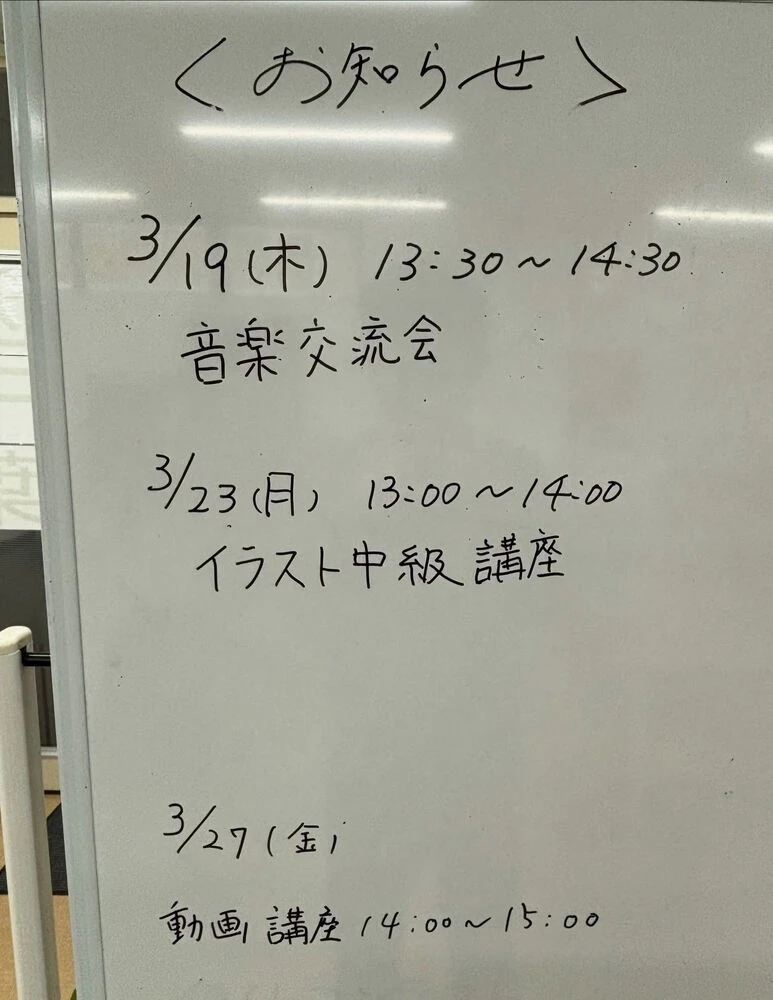 〈お知らせ〉
3/19(木) 13:30~14:30
音楽交流会
3/23(月) 13:00~14:00
イラスト中級講座
3/27(金)
動画講座 14:00~15:00